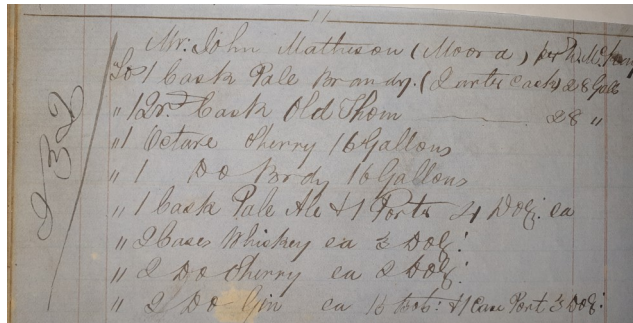 11
Mr. John Matheson (Moora) per
To 1 Cask Pale Brandy. (Quarter Cask) 28 Galls
" 1 Qr. Cask Old Thom 28 "
" 1 Octave Sherry 16 Gallons
" 1 Do Brdy 16 Gallons
" 1 Cask Pale Ale & 1 Porter 4 Doz. ea
" 2 Cases Whiskey ea 3 Doz:
" 2 Do Sherry ea 2 Doz:
" 2 Do Gin ea 16 bots: & 1 Case Port 3 Doz:
232